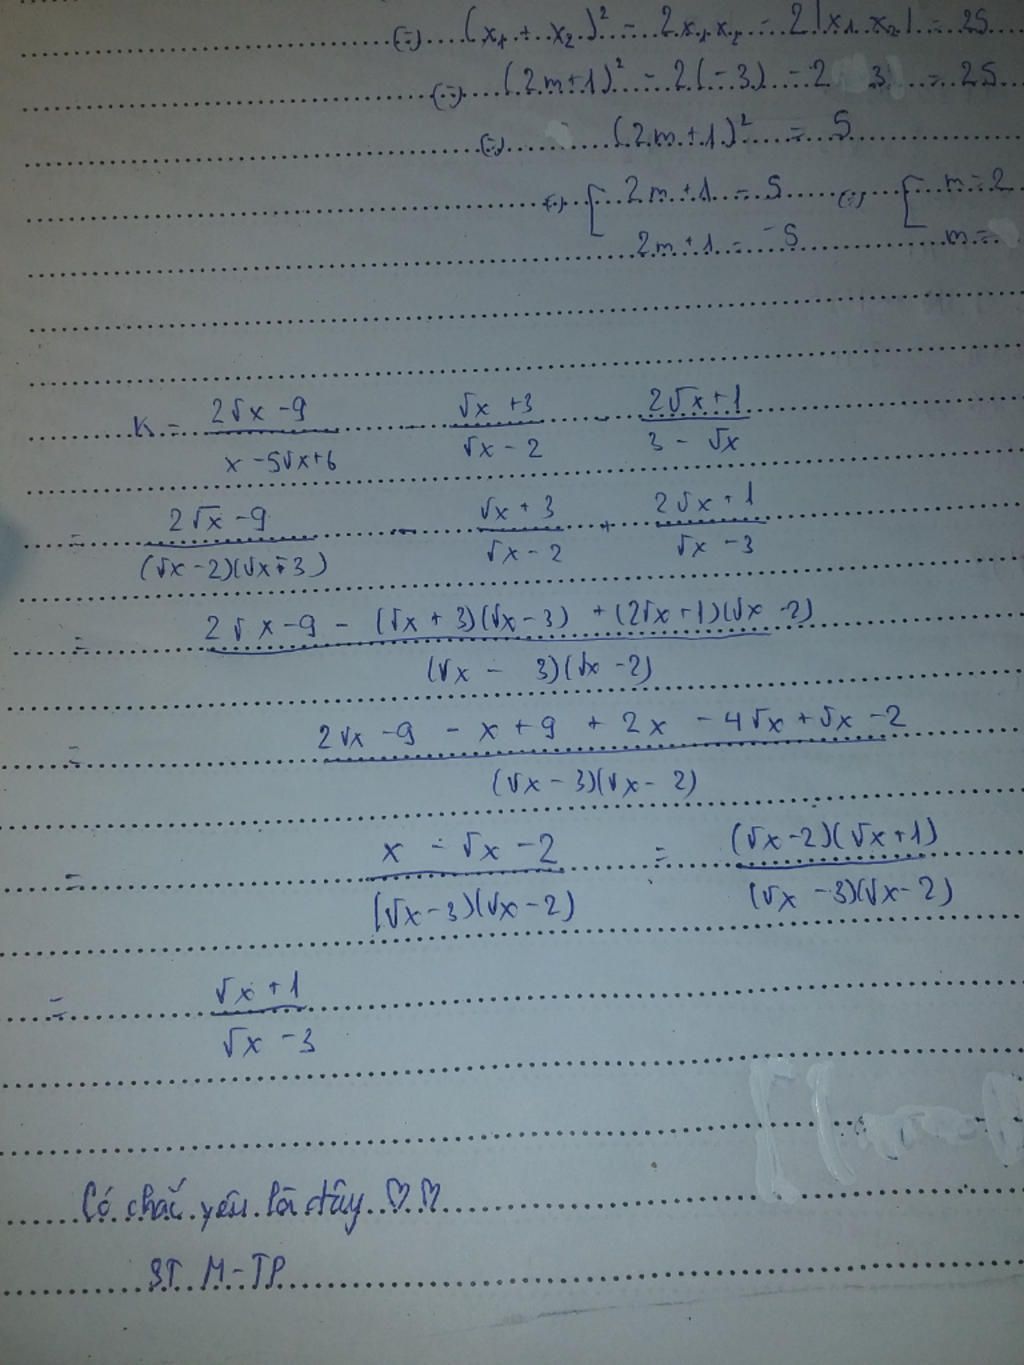 (=) (x₁ + x₂)² - 2x₁x₂ - 2|x₁x₂| = 25
(=) (2m+1)² - 2(-3) - 2 3 = 25
(=) (2m+1)² = 5
(=) [ 2m+1 = 5 (=) [ m = 2
2m+1 = -5 m =
K = (2√x - 9)/(x - 5√x + 6) - (√x + 3)/(√x - 2) - (2√x + 1)/(3 - √x)
= (2√x - 9)/((√x - 2)(√x - 3)) - (√x + 3)/(√x - 2) + (2√x + 1)/(√x - 3)
= (2√x - 9 - (√x + 3)(√x - 3) + (2√x + 1)(√x - 2))/((√x - 3)(√x - 2))
= (2√x - 9 - x + 9 + 2x - 4√x + √x - 2)/((√x - 3)(√x - 2))
= (x - √x - 2)/((√x - 3)(√x - 2)) = ((√x - 2)(√x + 1))/((√x - 3)(√x - 2))
= (√x + 1)/(√x - 3)
Có chắc yêu là đây ♡♡
ST M-TP